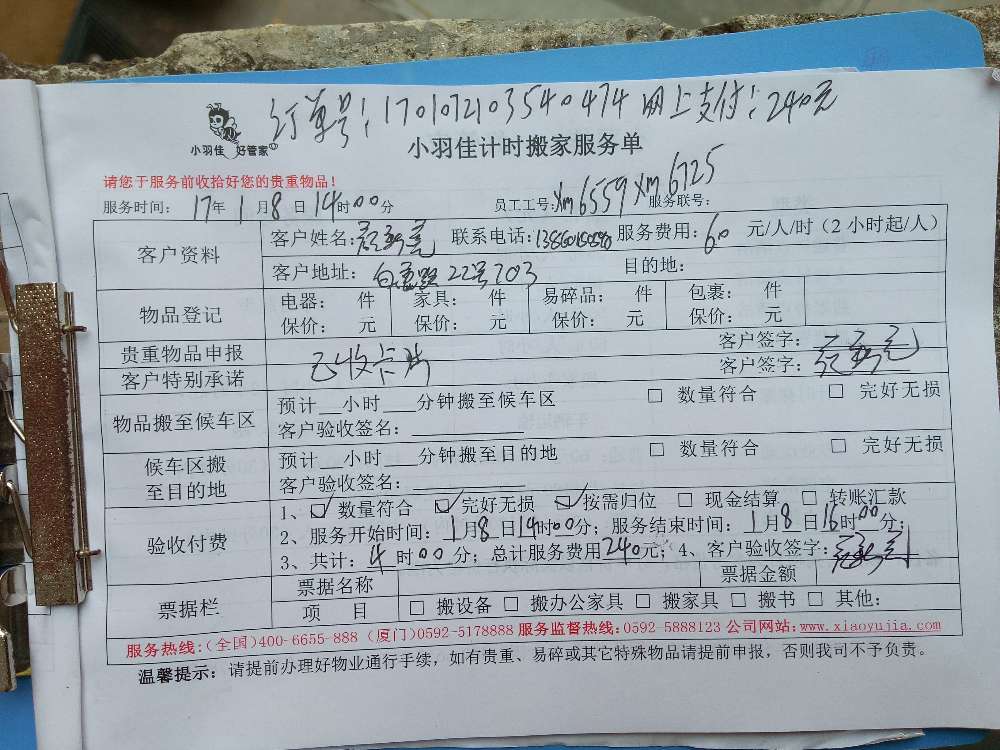 订单号：1701072103540474 网上支付：240元
小羽佳 好管家
小羽佳计时搬家服务单
请您于服务前收拾好您的贵重物品！
服务时间： 17年 1月 8日 14时00分 员工工号：xm6559 xm6725 服务联号：
客户资料 客户姓名： 联系电话： 服务费用：60 元/人/时（2小时起/人）
客户地址： 22号703 目的地：
物品登记 电器： 件 家具： 件 易碎品： 件 包裹： 件
保价： 元 保价： 元 保价： 元 保价： 元
贵重物品申报 客户签字：
客户特别承诺 已收卡片 客户签字：
物品搬至候车区 预计__小时___分钟搬至候车区 □ 数量符合 □ 完好无损
客户验收签名：
候车区搬至目的地 预计__小时___分钟搬至目的地 □ 数量符合 □ 完好无损
客户验收签名：
验收付费 1、☑ 数量符合 ☑ 完好无损 ☑ 按需归位 □ 现金结算 □ 转账汇款
2、服务开始时间：1月8日14时00分；服务结束时间：1月8日16时00分；
3、共计：4时00分；总计服务费用240元；4、客户验收签字：
票据栏 票据名称 票据金额
项 目 □ 搬设备 □ 搬办公家具 □ 搬家具 □ 搬书 □ 其他：
服务热线：（全国）400-6655-888（厦门）0592-5178888 服务监督热线：0592-5888123 公司网站：www.xiaoyujia.com
温馨提示：请提前办理好物业通行手续，如有贵重、易碎或其它特殊物品请提前申报，否则我司不予负责。